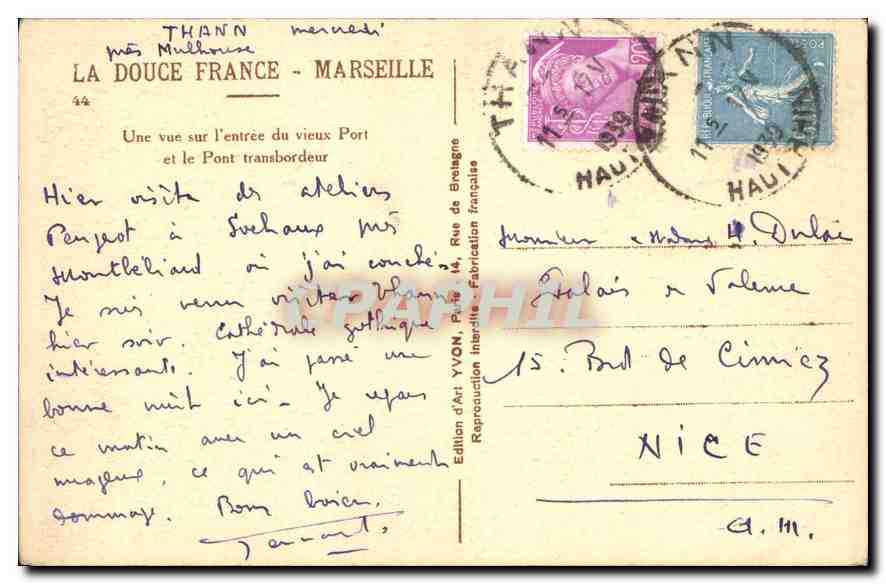 THANN mercredi
près Mulhouse
LA DOUCE FRANCE - MARSEILLE
44
Une vue sur l'entrée du vieux Port
et le Pont transbordeur
Hier visite des ateliers
Peugeot à Sochaux près
Montbéliard où j'ai couché.
Je suis venu visiter Thann
hier soir. Cathédrale gothique
intéressante. J'ai passé une
bonne nuit ici - Je repars
ce matin avec un ciel
nuageux, ce qui est vraiment
dommage. Bons baisers.
Edition d'Art YVON, Paris 14, Rue de Bretagne
Reproduction interdite Fabrication française
THANN
11-5 1939
HAUT-RHIN
20c
REPUBLIQUE FRANÇAISE
THANN
11-5 1939
HAUT-RHIN
REPUBLIQUE FRANÇAISE
POSTES
Monsieur et Madame H.
Palais de Valence
15. Bd de Cimiez
NICE
A.M.
CPAPHIL